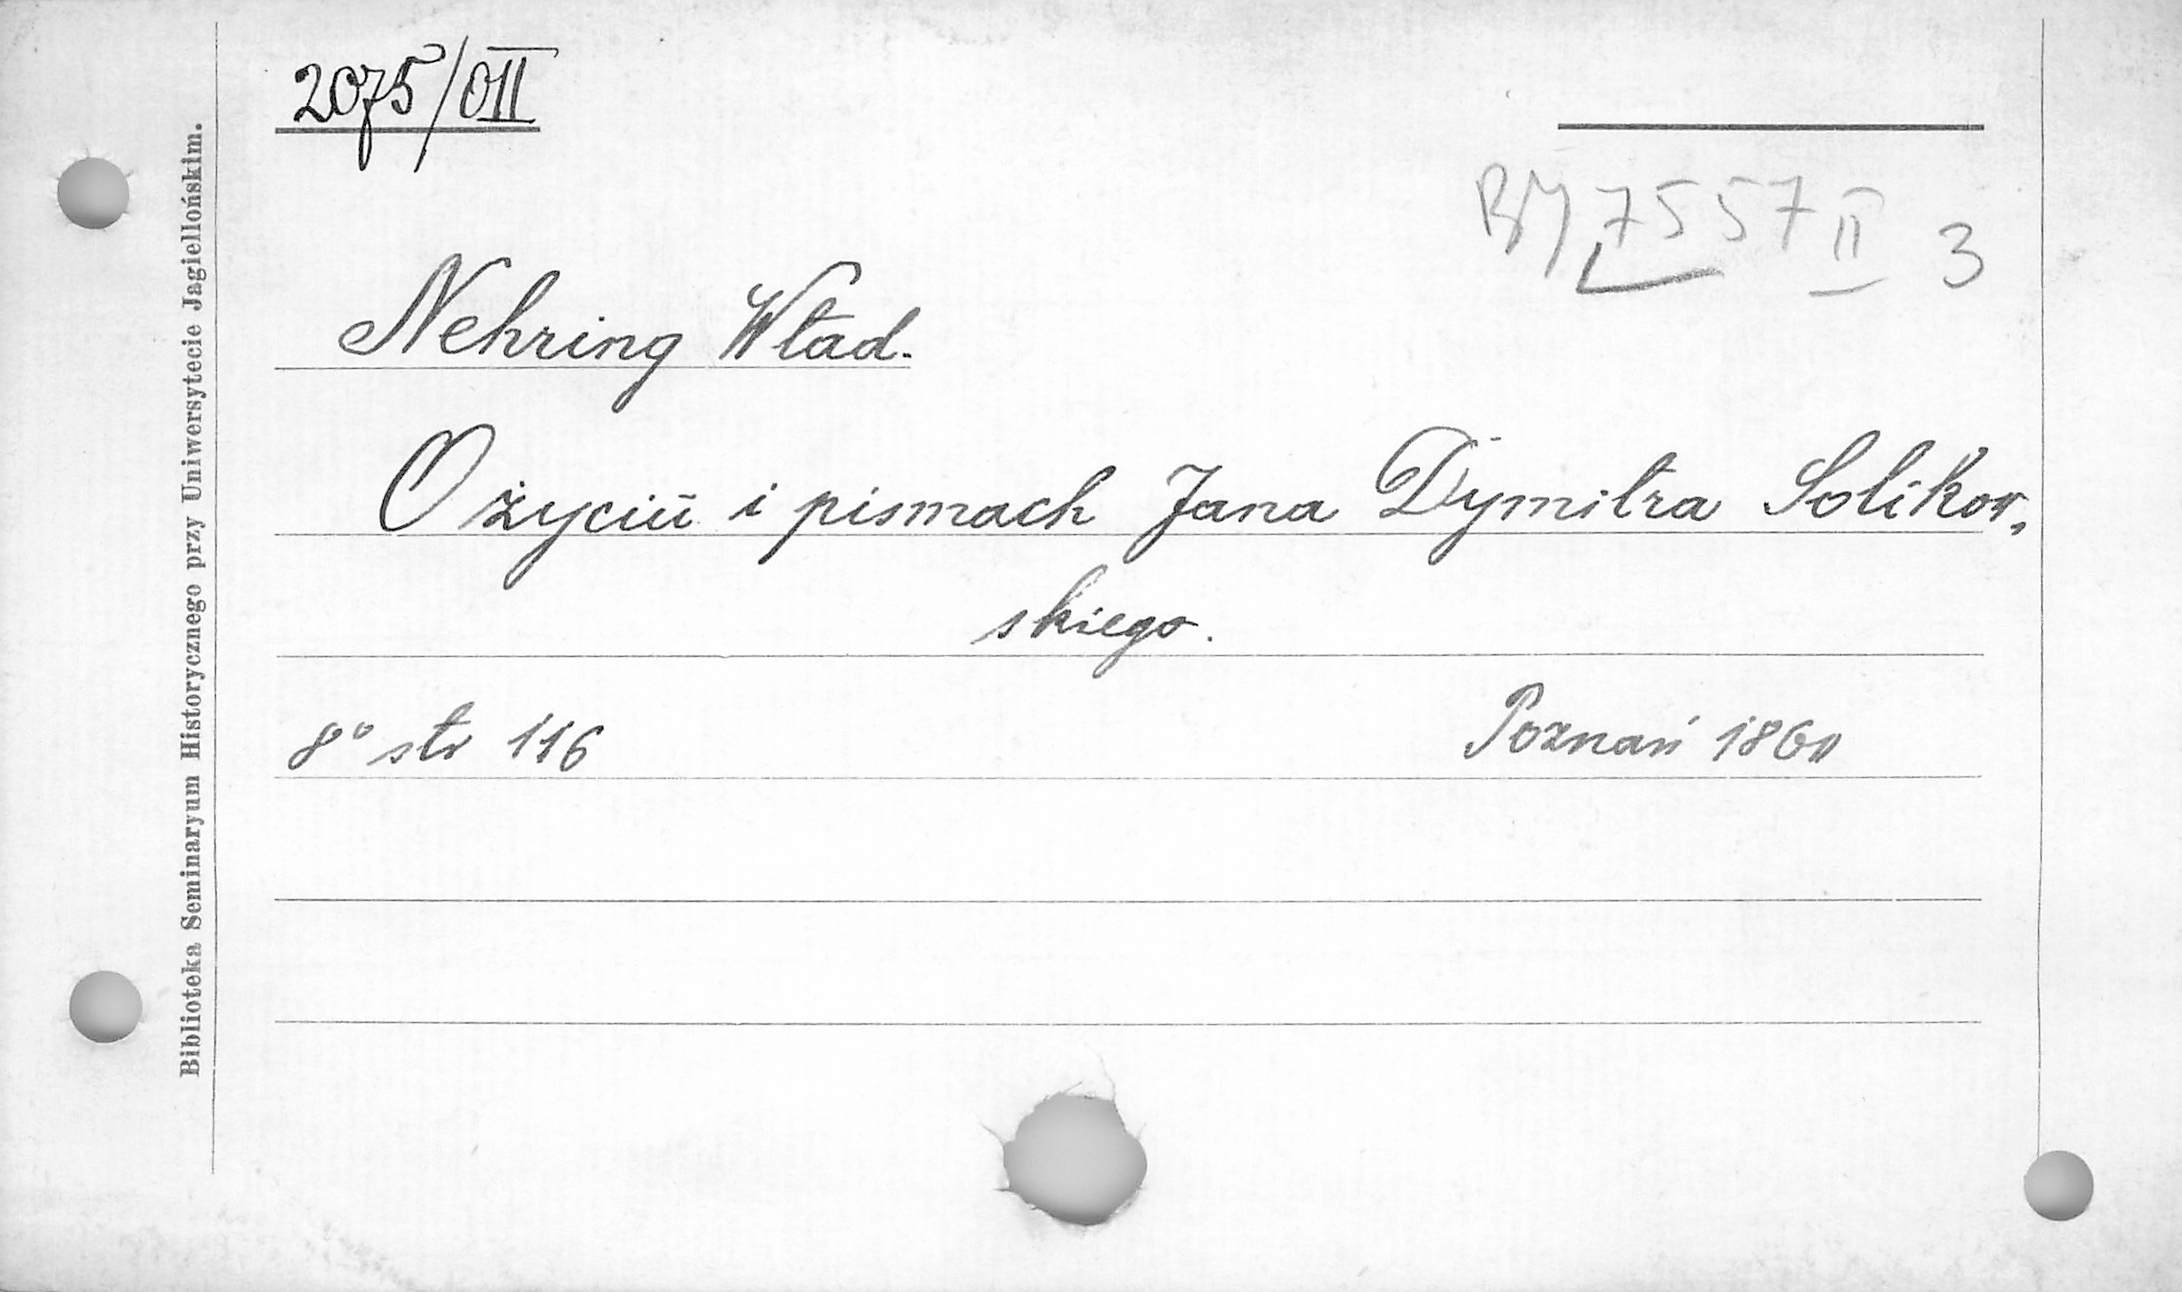 2075/OII
BJ 7557 II 3
Nehring Wład.
O życiu i pismach Jana Dymitra Solikow„
skiego.
8° str 116
Poznań 1860
Biblioteka Seminaryum Historycznego przy Uniwersytecie Jagiellońskim.